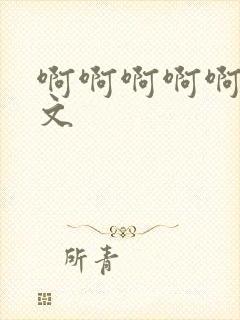 啊啊啊啊啊
文
所青